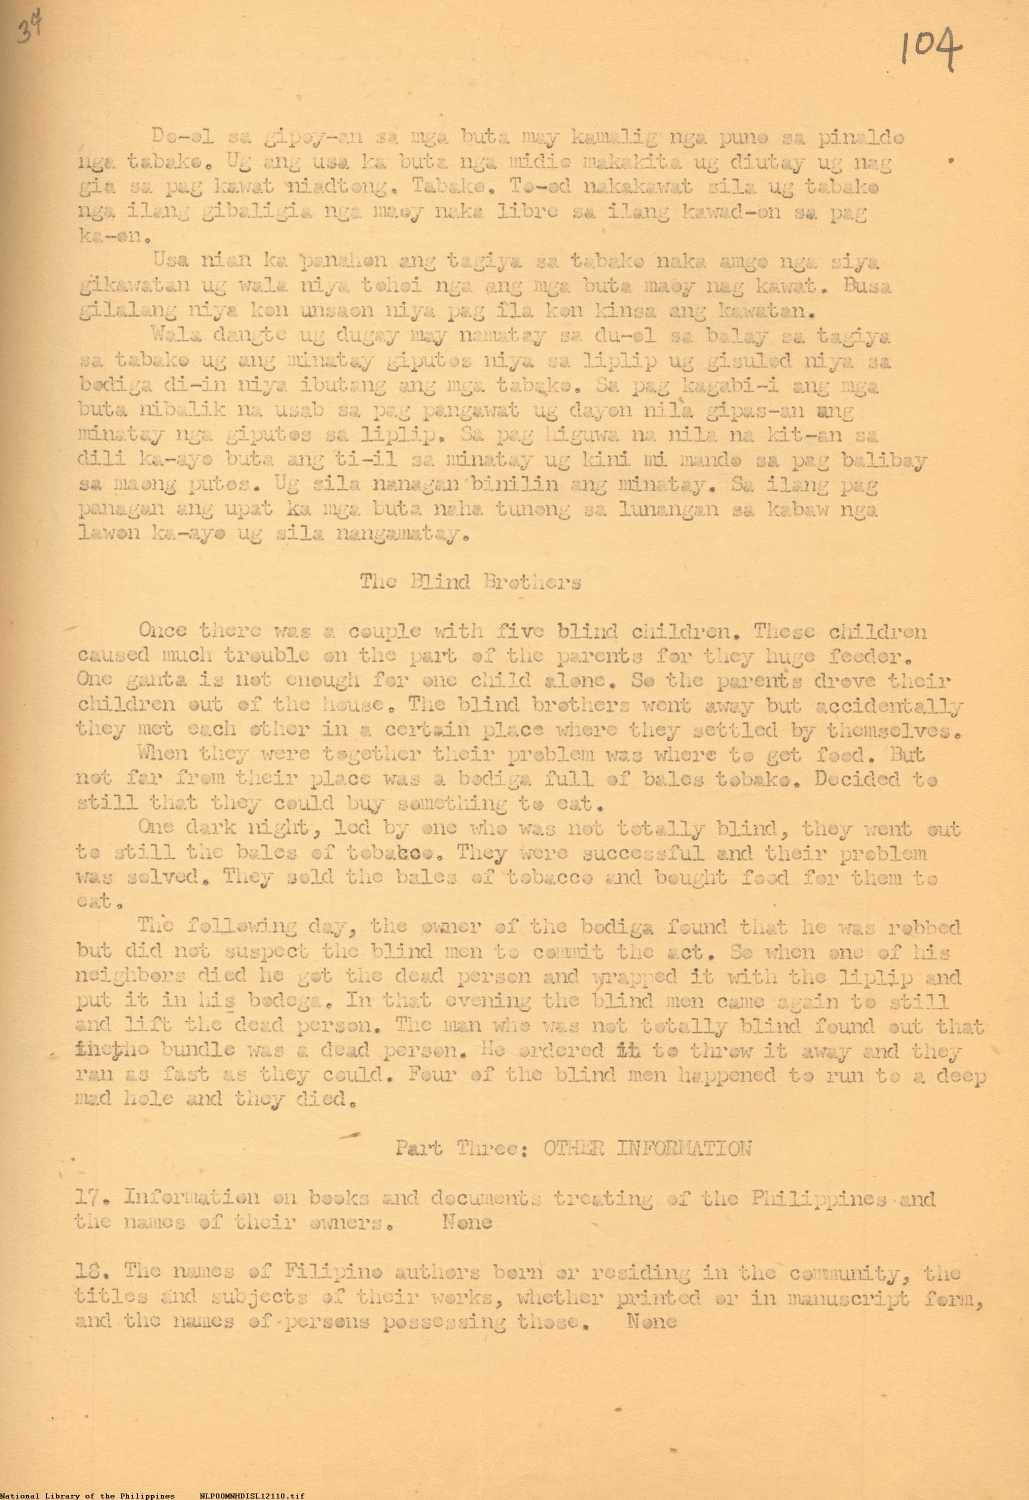 34
104
Do-ol sa gipoy-an sa mga buta may kamalig nga puno sa pinaldo
nga tabako. Ug ang usa ka buta nga midio makakita ug diutay ug nag
gia sa pag kawat niadtong. Tabako. To-od nakakawat sila ug tabako
nga ilang gibaligia nga maoy naka libre sa ilang kawad-on sa pag
ka-on.
Usa nian ka panahon ang tagiya sa tabako naka amgo nga siya
gikawatan ug wala niya tohoi nga ang mga buta maoy nag kawat. Busa
gilalang niya kon unsaon niya pag ila kon kinsa ang kawatan.
Wala dangte ug dugay may namatay sa du-ol sa balay sa tagiya
sa tabako ug ang minatay giputos niya sa liplip ug gisulod niya sa
bodiga di-in niya ibutang ang mga tabako. Sa pag kagabi-i ang mga
buta nibalik na usab sa pag pangawat ug dayon nila gipas-an ang
minatay nga giputos sa liplip. Sa pag higuwa na nila na kit-an sa
dili ka-ayo buta ang ti-il sa minatay ug kini mi mando sa pag balibay
sa maong putos. Ug sila nanagan binilin ang minatay. Sa ilang pag
panagan ang upat ka mga buta naha tunong sa lunangan sa kabaw nga
lawon ka-ayo ug sila nangamatay.
The Blind Brothers
Once there was a couple with five blind children. These children
caused much trouble on the part of the parents for they huge feeder.
One ganta is not enough for one child alone. So the parents drove their
children out of the house. The blind brothers went away but accidentally
they met each other in a certain place where they settled by themselves.
When they were together their problem was where to get food. But
not far from their place was a bodiga full of bales tobako. Decided to
still that they could buy something to eat.
One dark night, led by one who was not totally blind, they went out
to still the bales of tobacco. They were successful and their problem
was solved. They sold the bales of tobacco and bought food for them to
eat.
The following day, the owner of the bodiga found that he was robbed
but did not suspect the blind men to commit the act. So when one of his
neighbors died he got the dead person and wrapped it with the liplip and
put it in his bodega. In that evening the blind men came again to still
and lift the dead person. The man who was not totally blind found out that
the bundle was a dead person. He ordered it to throw it away and they
ran as fast as they could. Four of the blind men happened to run to a deep
mad hole and they died.
Part Three: OTHER INFORMATION
17. Information on books and documents treating of the Philippines and
the names of their owners. None
18. The names of Filipino authors born or residing in the community, the
titles and subjects of their works, whether printed or in manuscript form,
and the names of persons possessing those. None
National Library of the Philippines NLPOOMNHDISL12110.tif